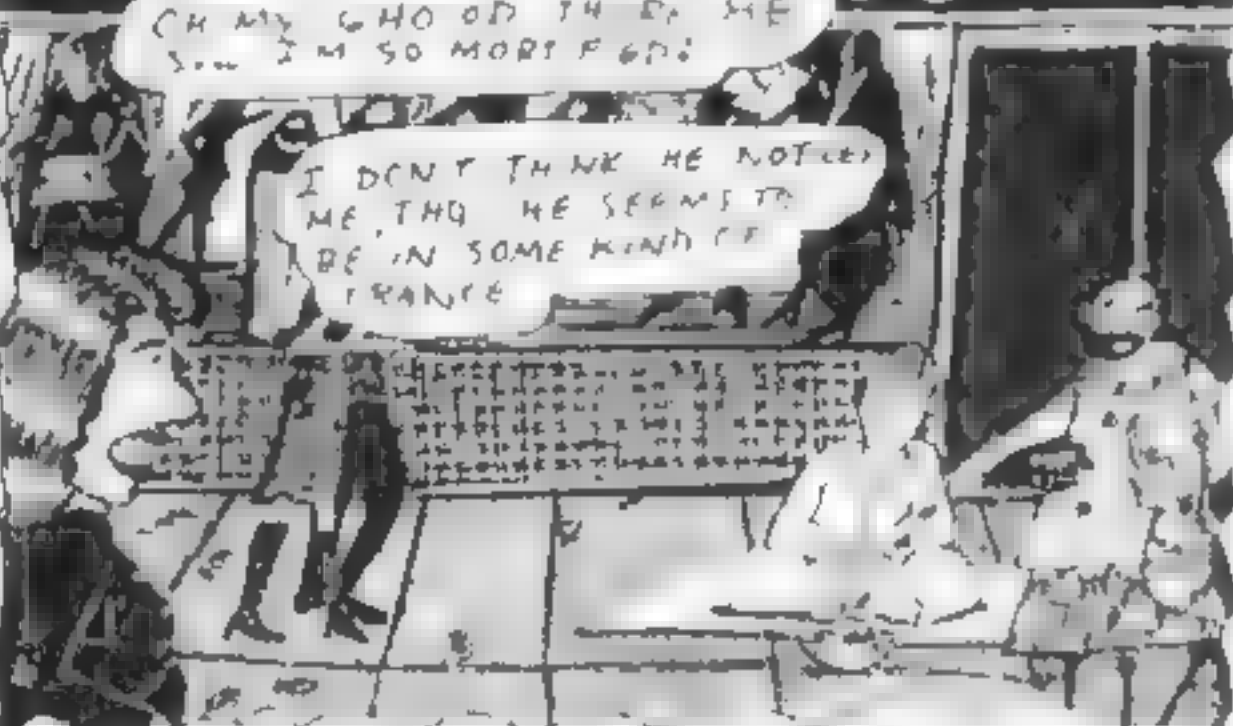 OH MY GHO OD TH ME
I'M SO MORTIFIED!
I DON'T THINK HE NOTICED
ME, THO HE SEEMS TO
BE IN SOME KIND OF
TRANCE